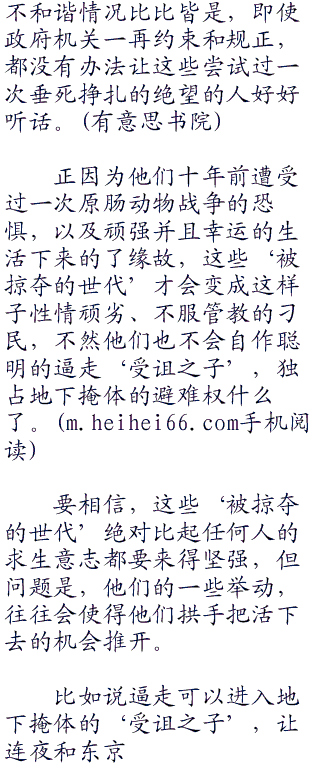 不和谐情况比比皆是，即使
政府机关一再约束和规正，
都没有办法让这些尝试过一
次垂死挣扎的绝望的人好好
听话。(有意思书院)
正因为他们十年前遭受
过一次原肠动物战争的恐
惧，以及顽强并且幸运的生
活下来的了缘故，这些‘被
掠夺的世代’才会变成这样
子性情顽劣、不服管教的刁
民，不然他们也不会自作聪
明的逼走‘受诅之子’，独
占地下掩体的避难权什么
了。(m.heihei66.com手机阅
读)
要相信，这些‘被掠夺
的世代’绝对比起任何人的
求生意志都要来得坚强，但
问题是，他们的一些举动，
往往会使得他们拱手把活下
去的机会推开。
比如说逼走可以进入地
下掩体的‘受诅之子’，让
连夜和东京